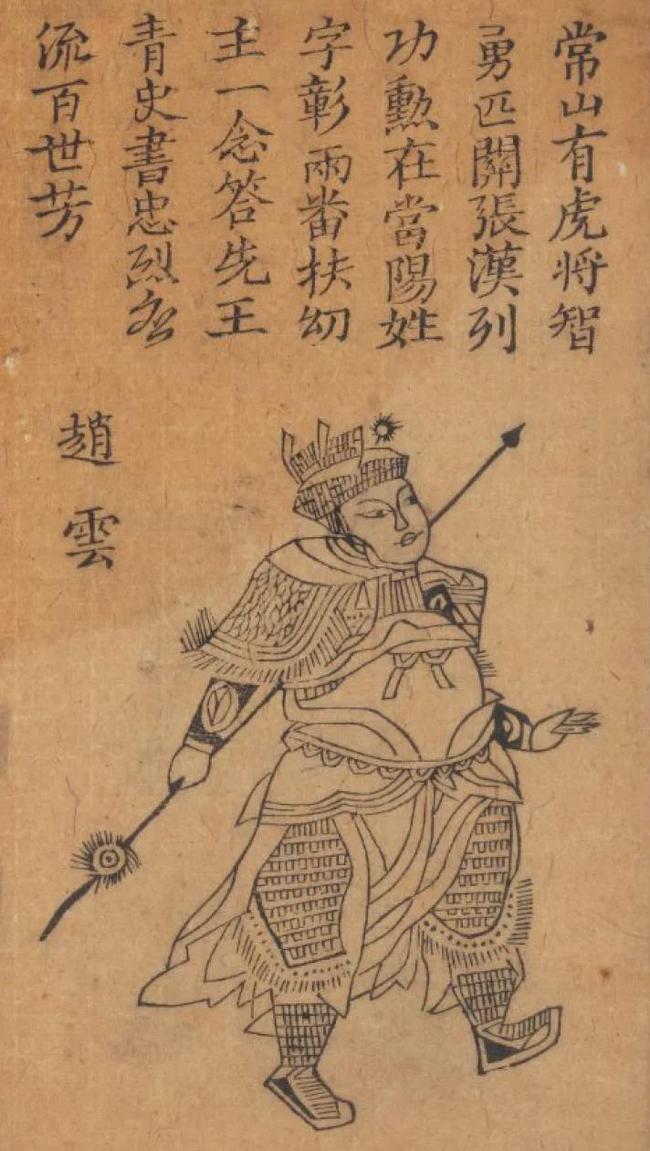 常山有虎将智
勇匹關張漢列
功勲在當陽姓
字彰兩番扶幼
主一念答先王
青史書忠烈
流百世芳
趙雲